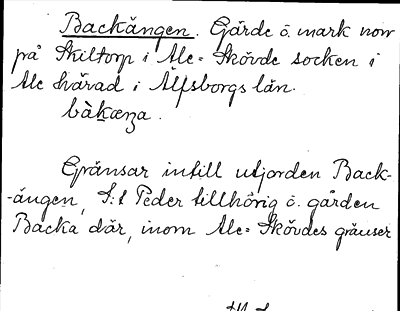 Backängen. Gärde o. mark norr
på Skiltorp i Ale-Skövde socken i
Ale härad i Älfsborgs län.
bàkæŋa.
Gränsar intill utjorden Back-
-ängen, S:t Peder tillhörig o. gården
Backa där, inom Ale-Skövdes gränser